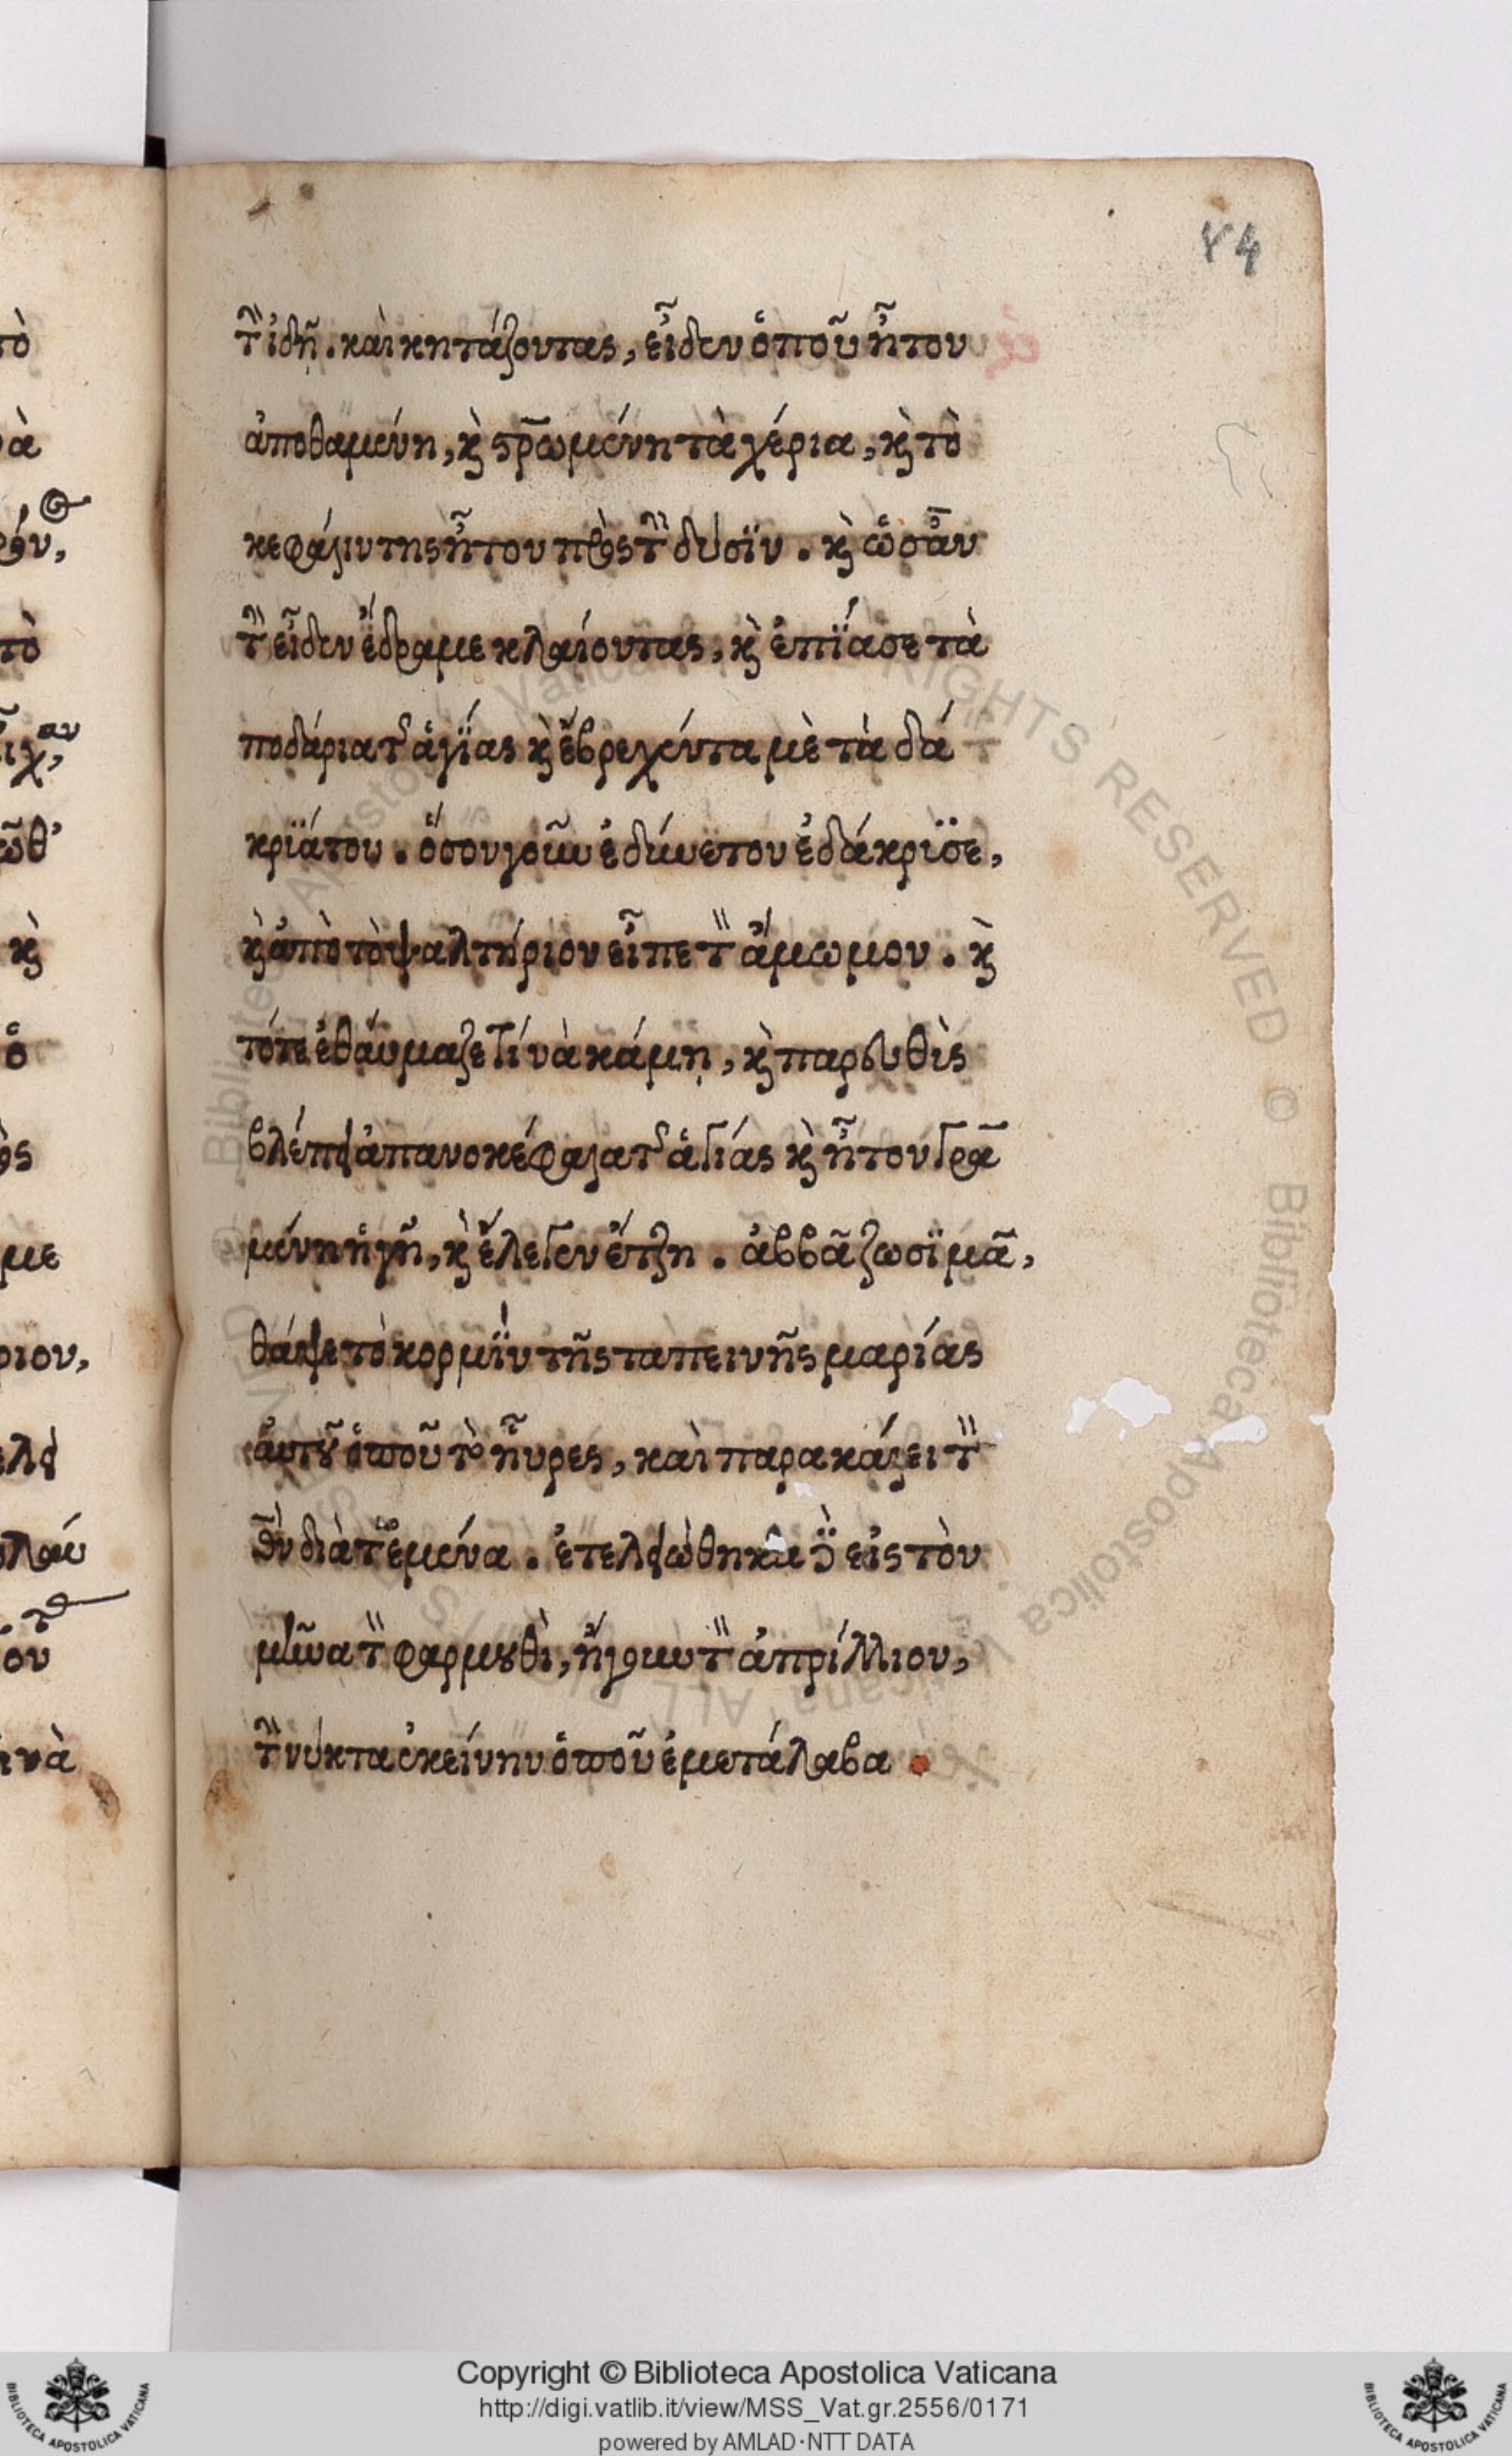 84
τὴν ἰδῆ. καὶ κητάζοντας, εἶδεν ὁποῦ ἦτον
ἀποθαμένη, κ̀ στρωμένη τὰ χέρια, κ̀ τὸ
κεφάλιν της ἦτον πρὸς τὴν δύσϊν. κ̀ ὡσὰν
τὴν εἶδεν ἔδραμε κλαίοντας, κ̀ ἐπΐασε τὰ
ποδάρια τῆς ἁγΐας κ̀ ἔβρεχέν τα μὲ τὰ δά
κρϊά του. ὅσον γοῦν ἐδύνετον ἐδάκρϊσε,
κ̀ ἀπὸ τὸ ψαλτήριον εἶπε τὸν ἄμωμον. κ̀
τότε ἐθαύμαζε τί νὰ κάμῃ, κ̀ παρευθὶς
βλέπει ἀπανοκέφαλα τῆς ἁγίας κ̀ ἦτον γραμ
μένη ἡ γῆ, κ̀ ἔλεγεν ἔτζη. ἀββᾶ ζωσϊμᾶ,
θάψε τὸ κορμΐν τῆς ταπεινῆς μαρίας
αὐτοῦ ὁποῦ τὸ ἦυρες, καὶ παρακάλει τὸν
θν̅ διὰ τ' ἐμένα. ἐτελειώθηκα δὲ εἰς τὸν
μῆνα τὸν φαρμουθὶ, ἤγουν τὸν ἀπρίλλιον,
τὴν νύκτα ἐκείνην ὁποῦ ἐμετάλαβα.
τὸ
κ̀
ὁ
με
ριον,
Copyright © Biblioteca Apostolica Vaticana
http://digi.vatlib.it/view/MSS_Vat.gr.2556/0171
powered by AMLAD·NTT DATA
BIBLIOTECA APOSTOLICA VATICANA
BIBLIOTECA APOSTOLICA VATICANA